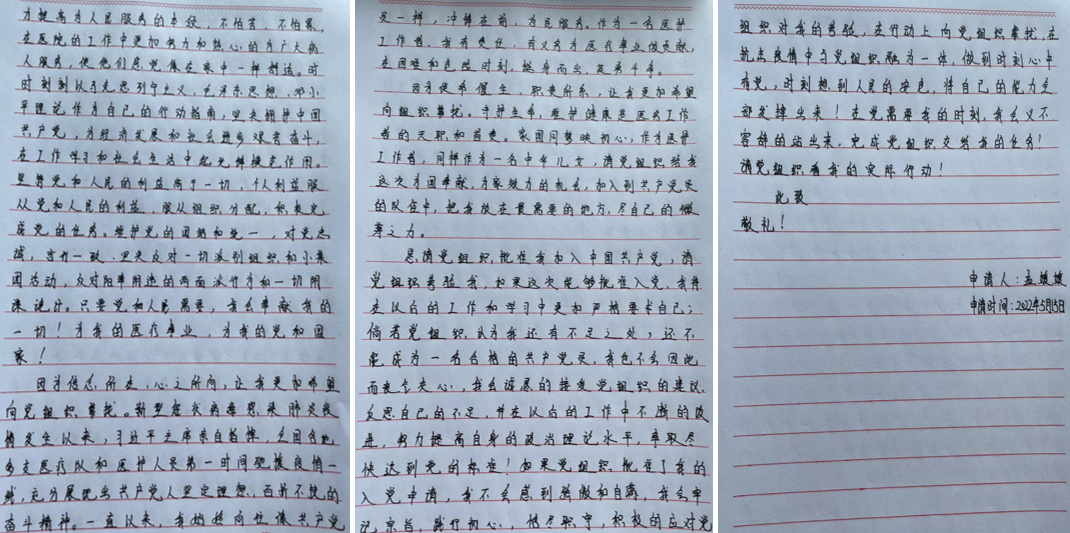 力提高为人民服务的本领，不怕苦、不怕累，
在医院的工作中更加努力和热心的为广大病
人服务，使他们感觉像在家中一样舒适。时
时刻刻以马克思列宁主义、毛泽东思想、邓小
平理论作为自己的行动指南，坚决拥护中国
共产党，为经济发展和社会进步艰苦奋斗，
在工作学习和社会生活中起先锋模范作用。
坚持党和人民的利益高于一切，个人利益服
从党和人民的利益，服从组织分配，积极完
成党的任务。维护党的团结和统一，对党忠
诚，言行一致，坚决反对一切派别组织和小集
团活动，反对阳奉阴违的两面派行为和一切阴
谋诡计。只要党和人民需要，我会奉献我的
一切！为我的医疗事业，为我的党和国
家！
因为信念所在，心之所向，让我更加希望
向党组织靠拢。新型冠状病毒感染肺炎疫
情发生以来，习近平主席亲自指挥，全国各地
多支医疗队和医护人员第一时间驰援疫情一
线，充分展现出共产党人坚定理想、百折不挠的
奋斗精神。一直以来，我始终向往像共产党
员一样，冲锋在前、为民服务，作为一名医护
工作者，我有责任、有义务为医疗事业做贡献，
在困难和危险时刻，挺身而出，英勇斗争。
因为使命催生，职责所系，让我更加希望
向组织靠拢。守护生命，维护健康是医务工作
者的天职和自责。家国同梦映初心，作为医护
工作者，同样作为一名中华儿女，请党组织给我
这次为国奉献、为家效力的机会，加入到共产党员
的队伍中，把我放在最需要的地方，尽自己的绵
薄之力。
恳请党组织批准我加入中国共产党，请
党组织考验我，如果这次能够批准入党，我将
在以后的工作和学习中更加严格要求自己；
倘若党组织认为我还有不足之处，还不
能成为一名合格的共产党员，我也不会因此
而丧失决心，我会诚恳的接受党组织的建议，
反思自己的不足，并在以后的工作中不断的改
进，努力提高自身的政治理论水平，争取尽
快达到党的标准！如果党组织批准了我的
入党申请，我不会感到骄傲和自满，我会牢
记宗旨，践行初心，恪尽职守，积极的应对党
组织对我的考验，在行动上向党组织靠拢，在
抗击疫情中与党组织融为一体，做到时刻心中
有党，时刻想到人民的安危，将自己的能力全
部发挥出来！在党需要我的时刻，我会义不
容辞的站出来，完成党组织交给我的任务！
请党组织看我的实际行动！
此致
敬礼！
申请人：孟媛媛
申请时间：2022年5月15日